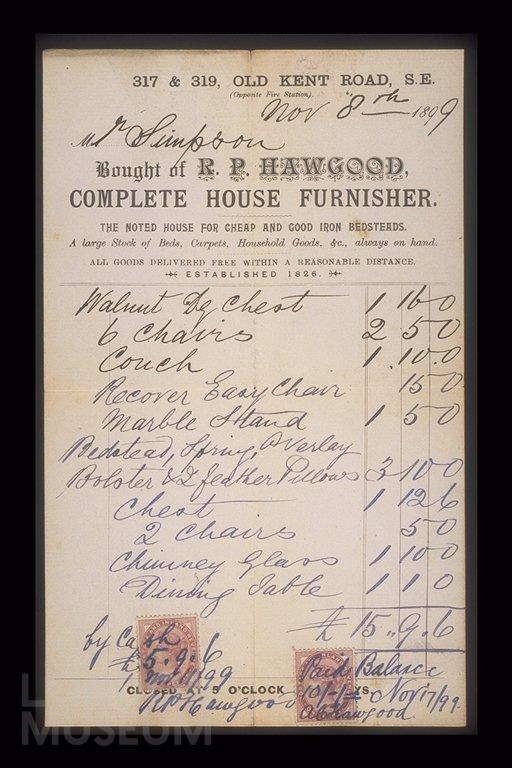 317 & 319, OLD KENT ROAD, S.E.
(Opposite Fire Station).
Nov 8th 1899
Mr Simpson
Bought of R. P. HAWGOOD,
COMPLETE HOUSE FURNISHER.
THE NOTED HOUSE FOR CHEAP AND GOOD IRON BEDSTEADS.
A large Stock of Beds, Carpets, Household Goods, &c., always on hand.
ALL GOODS DELIVERED FREE WITHIN A REASONABLE DISTANCE.
ESTABLISHED 1826.
Walnut Dg Chest 1 16 0
6 Chairs 2 5 0
Couch 1 10 0
Recover Easy Chair 15 0
Marble Stand 1 5 0
Bedstead, Spring, Overlay
Bolster & 2 feather Pillows 3 10 0
Chest 1 12 6
2 Chairs 5 0
Chimney Glass 1 10 0
Dining Table 1 1 0
£ 15. 9. 6
by Cash
£ 5. 9. 6
Nov 11/99
R P Hawgood
Paid Balance
10/-/- Nov 17/99
Hawgood
CLOSED AT 5 O'CLOCK
MUSEUM